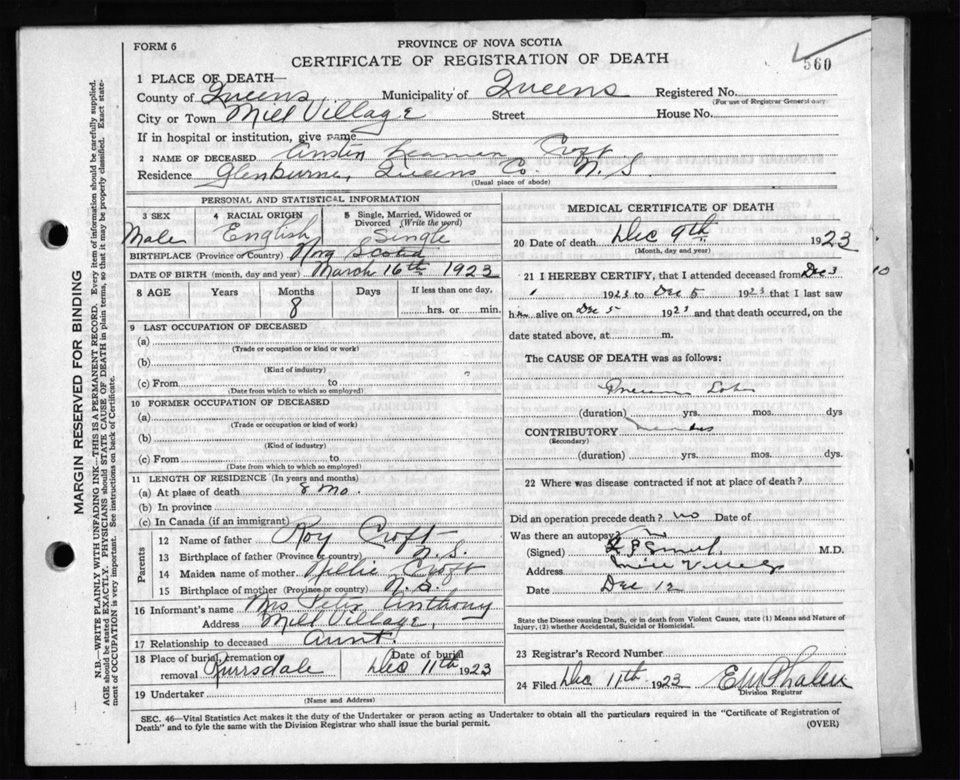 FORM 6
PROVINCE OF NOVA SCOTIA
CERTIFICATE OF REGISTRATION OF DEATH
560
1 PLACE OF DEATH—
County of Queens Municipality of Queens Registered No.
(For use of Registrar General only)
City or Town Mill Village Street House No.
If in hospital or institution, give name
2 NAME OF DECEASED Austin Croft
Residence Glenburne, Queens Co. N.S.
(Usual place of abode)
PERSONAL AND STATISTICAL INFORMATION
3 SEX 4 RACIAL ORIGIN 5 Single, Married, Widowed or Divorced (Write the word)
Male English Single
BIRTHPLACE (Province or Country) Nova Scotia
DATE OF BIRTH (month, day and year) March 16th 1923
8 AGE Years Months Days If less than one day,
8 hrs. or min.
9 LAST OCCUPATION OF DECEASED
(a)
(Trade or occupation or kind or work)
(b)
(Kind of industry)
(c) From to
(Date from which to which so employed)
10 FORMER OCCUPATION OF DECEASED
(a)
(Trade or occupation or kind of work)
(b)
(Kind of industry)
(c) From to
(Date from which to which so employed)
11 LENGTH OF RESIDENCE (In years and months)
(a) At place of death 8 Mo.
(b) In province
(c) In Canada (if an immigrant)
Parents
12 Name of father Roy Croft
13 Birthplace of father (Province or country) N.S.
14 Maiden name of mother Nellie Croft
15 Birthplace of mother (Province or country) N.S.
16 Informant's name Mrs Peter Anthony
Address Mill Village,
17 Relationship to deceased Aunt
18 Place of burial, cremation or removal Date of burial
Dec 11th 1923
19 Undertaker
(Name and Address)
MEDICAL CERTIFICATE OF DEATH
20 Date of death Dec 9th 1923
(Month, day and year)
21 I HEREBY CERTIFY, that I attended deceased from Dec 3
1923 to Dec 5 1923 that I last saw
him alive on Dec 5 1923 and that death occurred, on the
date stated above, at m.
The CAUSE OF DEATH was as follows:
(duration) yrs. mos. dys
CONTRIBUTORY
(Secondary)
(duration) yrs. mos. dys.
22 Where was disease contracted if not at place of death?
Did an operation precede death? no Date of
Was there an autopsy?
(Signed) M.D.
Address Mill Village
Date Dec 12
State the Disease causing Death, or in death from Violent Causes, state (1) Means and Nature of
Injury, (2) whether Accidental, Suicidal or Homicidal.
23 Registrar's Record Number
24 Filed Dec 11th 1923
Division Registrar
SEC. 46—Vital Statistics Act makes it the duty of the Undertaker or person acting as Undertaker to obtain all the particulars required in the "Certificate of Registration of
Death" and to fyle the same with the Division Registrar who shall issue the burial permit.
(OVER)
MARGIN RESERVED FOR BINDING
N.B.—WRITE PLAINLY WITH UNFADING INK—THIS IS A PERMANENT RECORD. Every item of information should be carefully supplied.
AGE should be stated EXACTLY. PHYSICIANS should STATE CAUSE OF DEATH in plain terms, so that it may be properly classified. Exact state-
ment of OCCUPATION is very important. See instructions on back of Certificate.